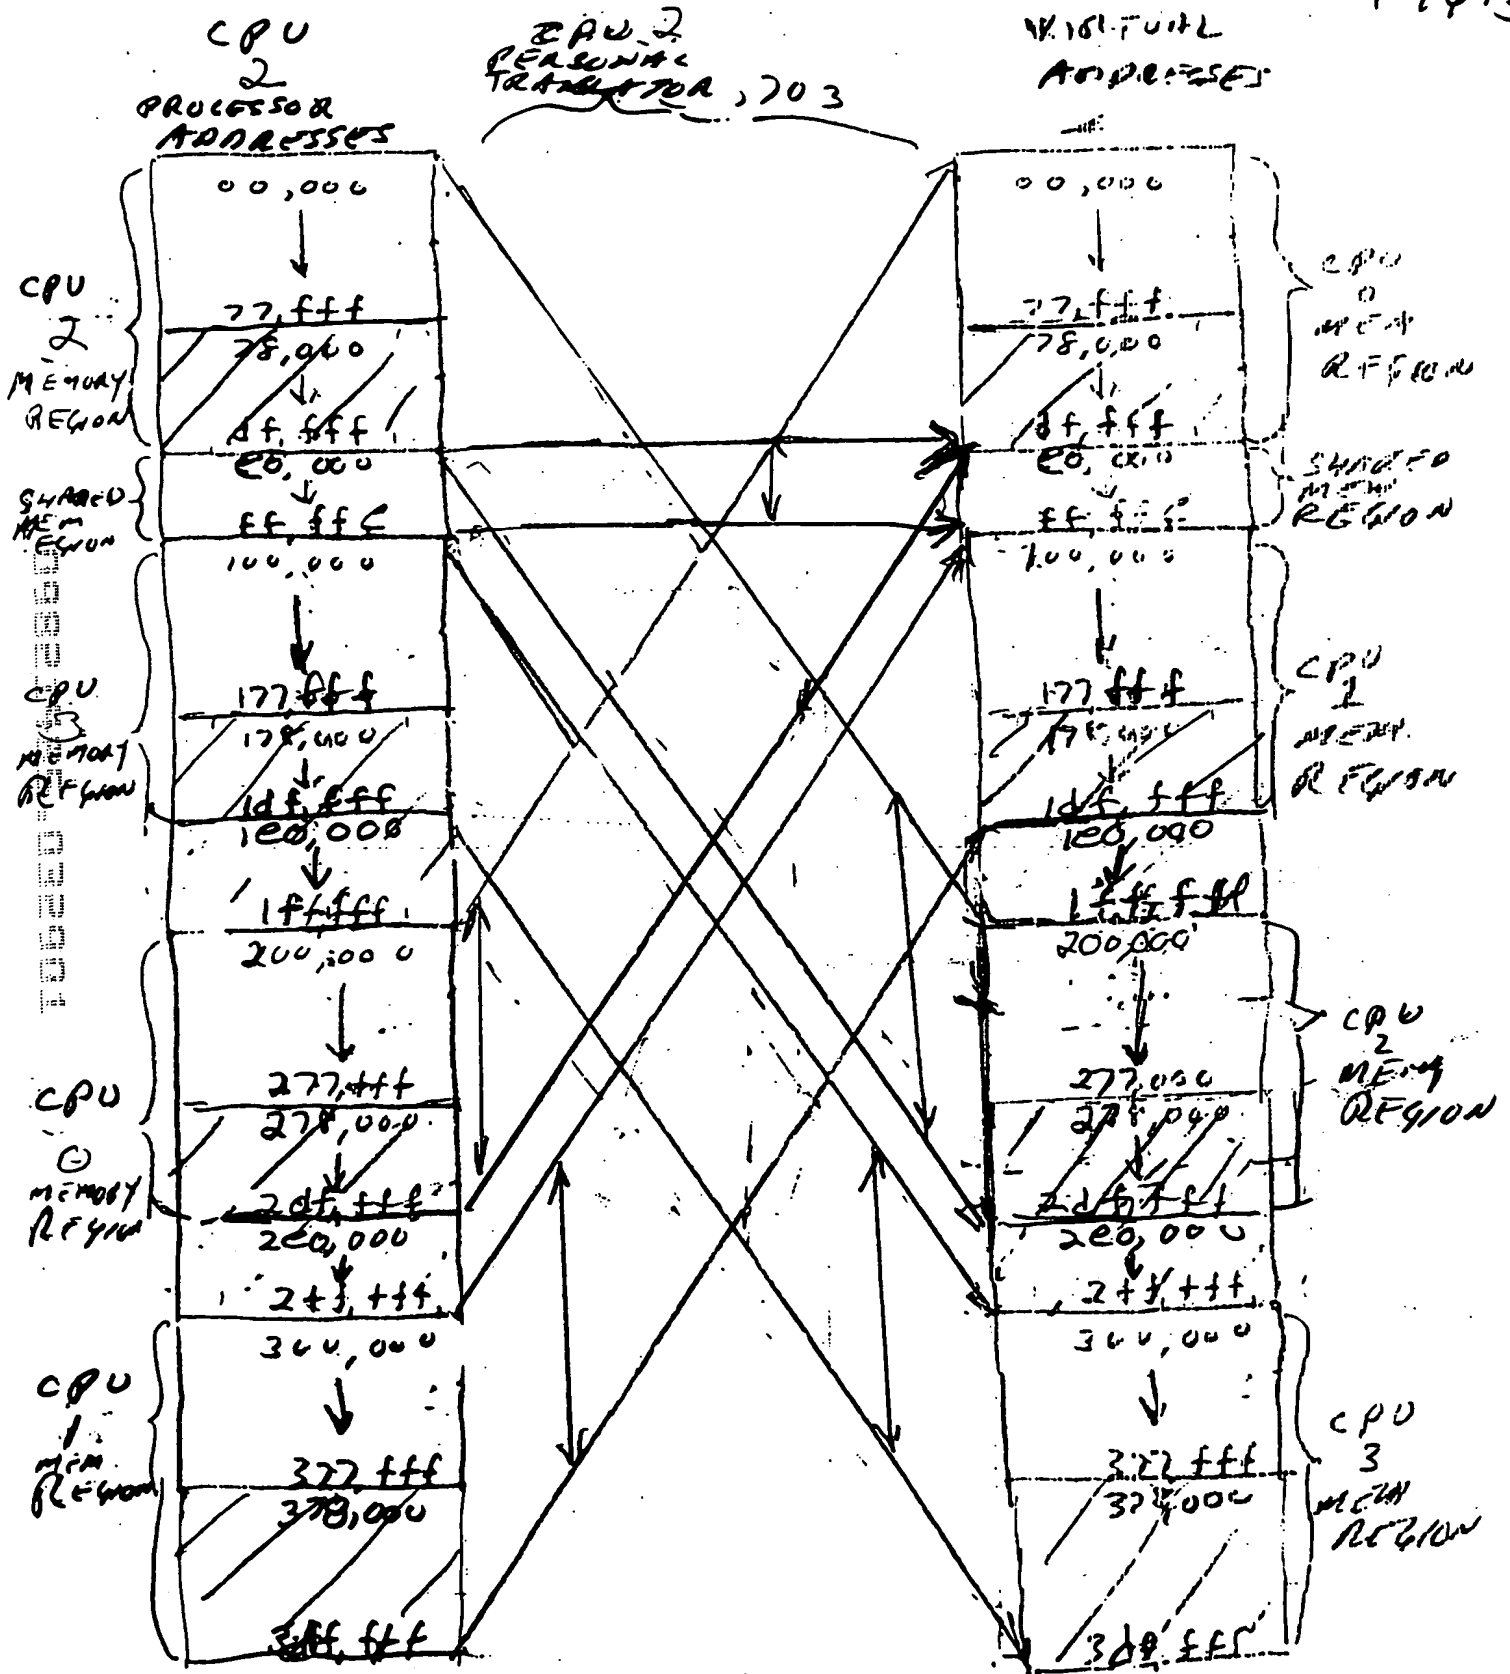 CPU
2
PROCESSOR
ADDRESSES
CPU 2
PERSONAL
TRANSLATOR, 703
VIRTUAL
ADDRESSES
CPU
2
MEMORY
REGION
SHARED
MEM
REGION
CPU
3
MEMORY
REGION
CPU
0
MEMORY
REGION
CPU
1
MEM
REGION
00,000
77,fff
78,000
df,fff
e0,000
ff,fff
100,000
177,fff
178,000
1df,fff
1e0,000
1ff,fff
200,000
277,fff
278,000
2df,fff
2e0,000
2ff,fff
300,000
377,fff
378,000
00,000
77,fff
78,000
df,fff
e0,000
ff,fff
100,000
177,fff
178,000
1df,fff
1e0,000
1ff,fff
200,000
277,000
278,000
2df,fff
2e0,000
2ff,fff
300,000
377,fff
378,000
3df,fff
CPU
0
MEM
REGION
SHARED
MEM
REGION
CPU
1
MEM.
REGION
CPU
2
MEM
REGION
CPU
3
MEM
REGION